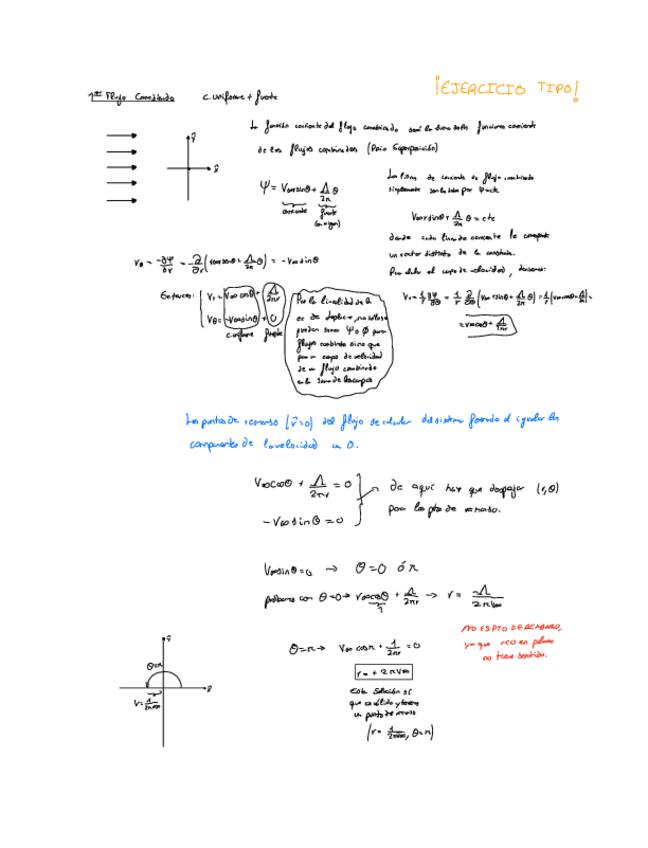 1er Flujo Combinado C. Uniforme + fuente
¡EJERCICIO TIPO!
La función corriente del flujo combinado será la suma de las funciones corriente
de los flujos combinados (Ppio Superposición)
ψ = V∞rsinθ + Λ/2π θ
corriente fuente
(en origen)
Las líneas de corriente del flujo combinado
simplemente son las dadas por ψ=cte
V∞rsinθ + Λ/2π θ = cte
donde cada línea de corriente le corresponde
un valor distinto de la constante.
Para dar el campo de velocidad,
Vθ = -∂ψ/∂r = -∂/∂r (V∞rsinθ + Λ/2π θ) = -V∞sinθ
Entonces: Vr = V∞cosθ + Λ/2πr
Vθ = -V∞sinθ + 0
c. uniforme fuente
Por la linealidad de la
ec de Laplace, no solo se
pueden sumar ψ o ϕ para
flujos combinados sino que
para un campo de velocidad
de un flujo combinado
es la suma de los campos
Vr = 1/r ∂ψ/∂θ = 1/r ∂/∂θ (V∞rsinθ + Λ/2π θ) = 1/r (V∞rcosθ + Λ/2π) =
= V∞cosθ + Λ/2πr
Los puntos de remanso (v̄=0) del flujo se calculan del sistema formado al igualar las
componentes de la velocidad a 0.
V∞cosθ + Λ/2πr = 0
-V∞sinθ = 0
de aquí hay que despejar (r,θ)
para los ptos de remanso.
V∞sinθ = 0 → θ=0 ó π
probamos con θ=0 → V∞cosθ + Λ/2πr → r = -Λ/2πV∞
1
NO ES PTO DE REMANSO,
ya que r<0 en polares
no tiene sentido.
θ=π → V∞ cosπ + Λ/2πr = 0
r = + 2πV∞
Esta solución sí
que es válida y tenemos
un punto de remanso
(r = Λ/2πV∞, θ=π)
θ=π
r = Λ/2πV∞